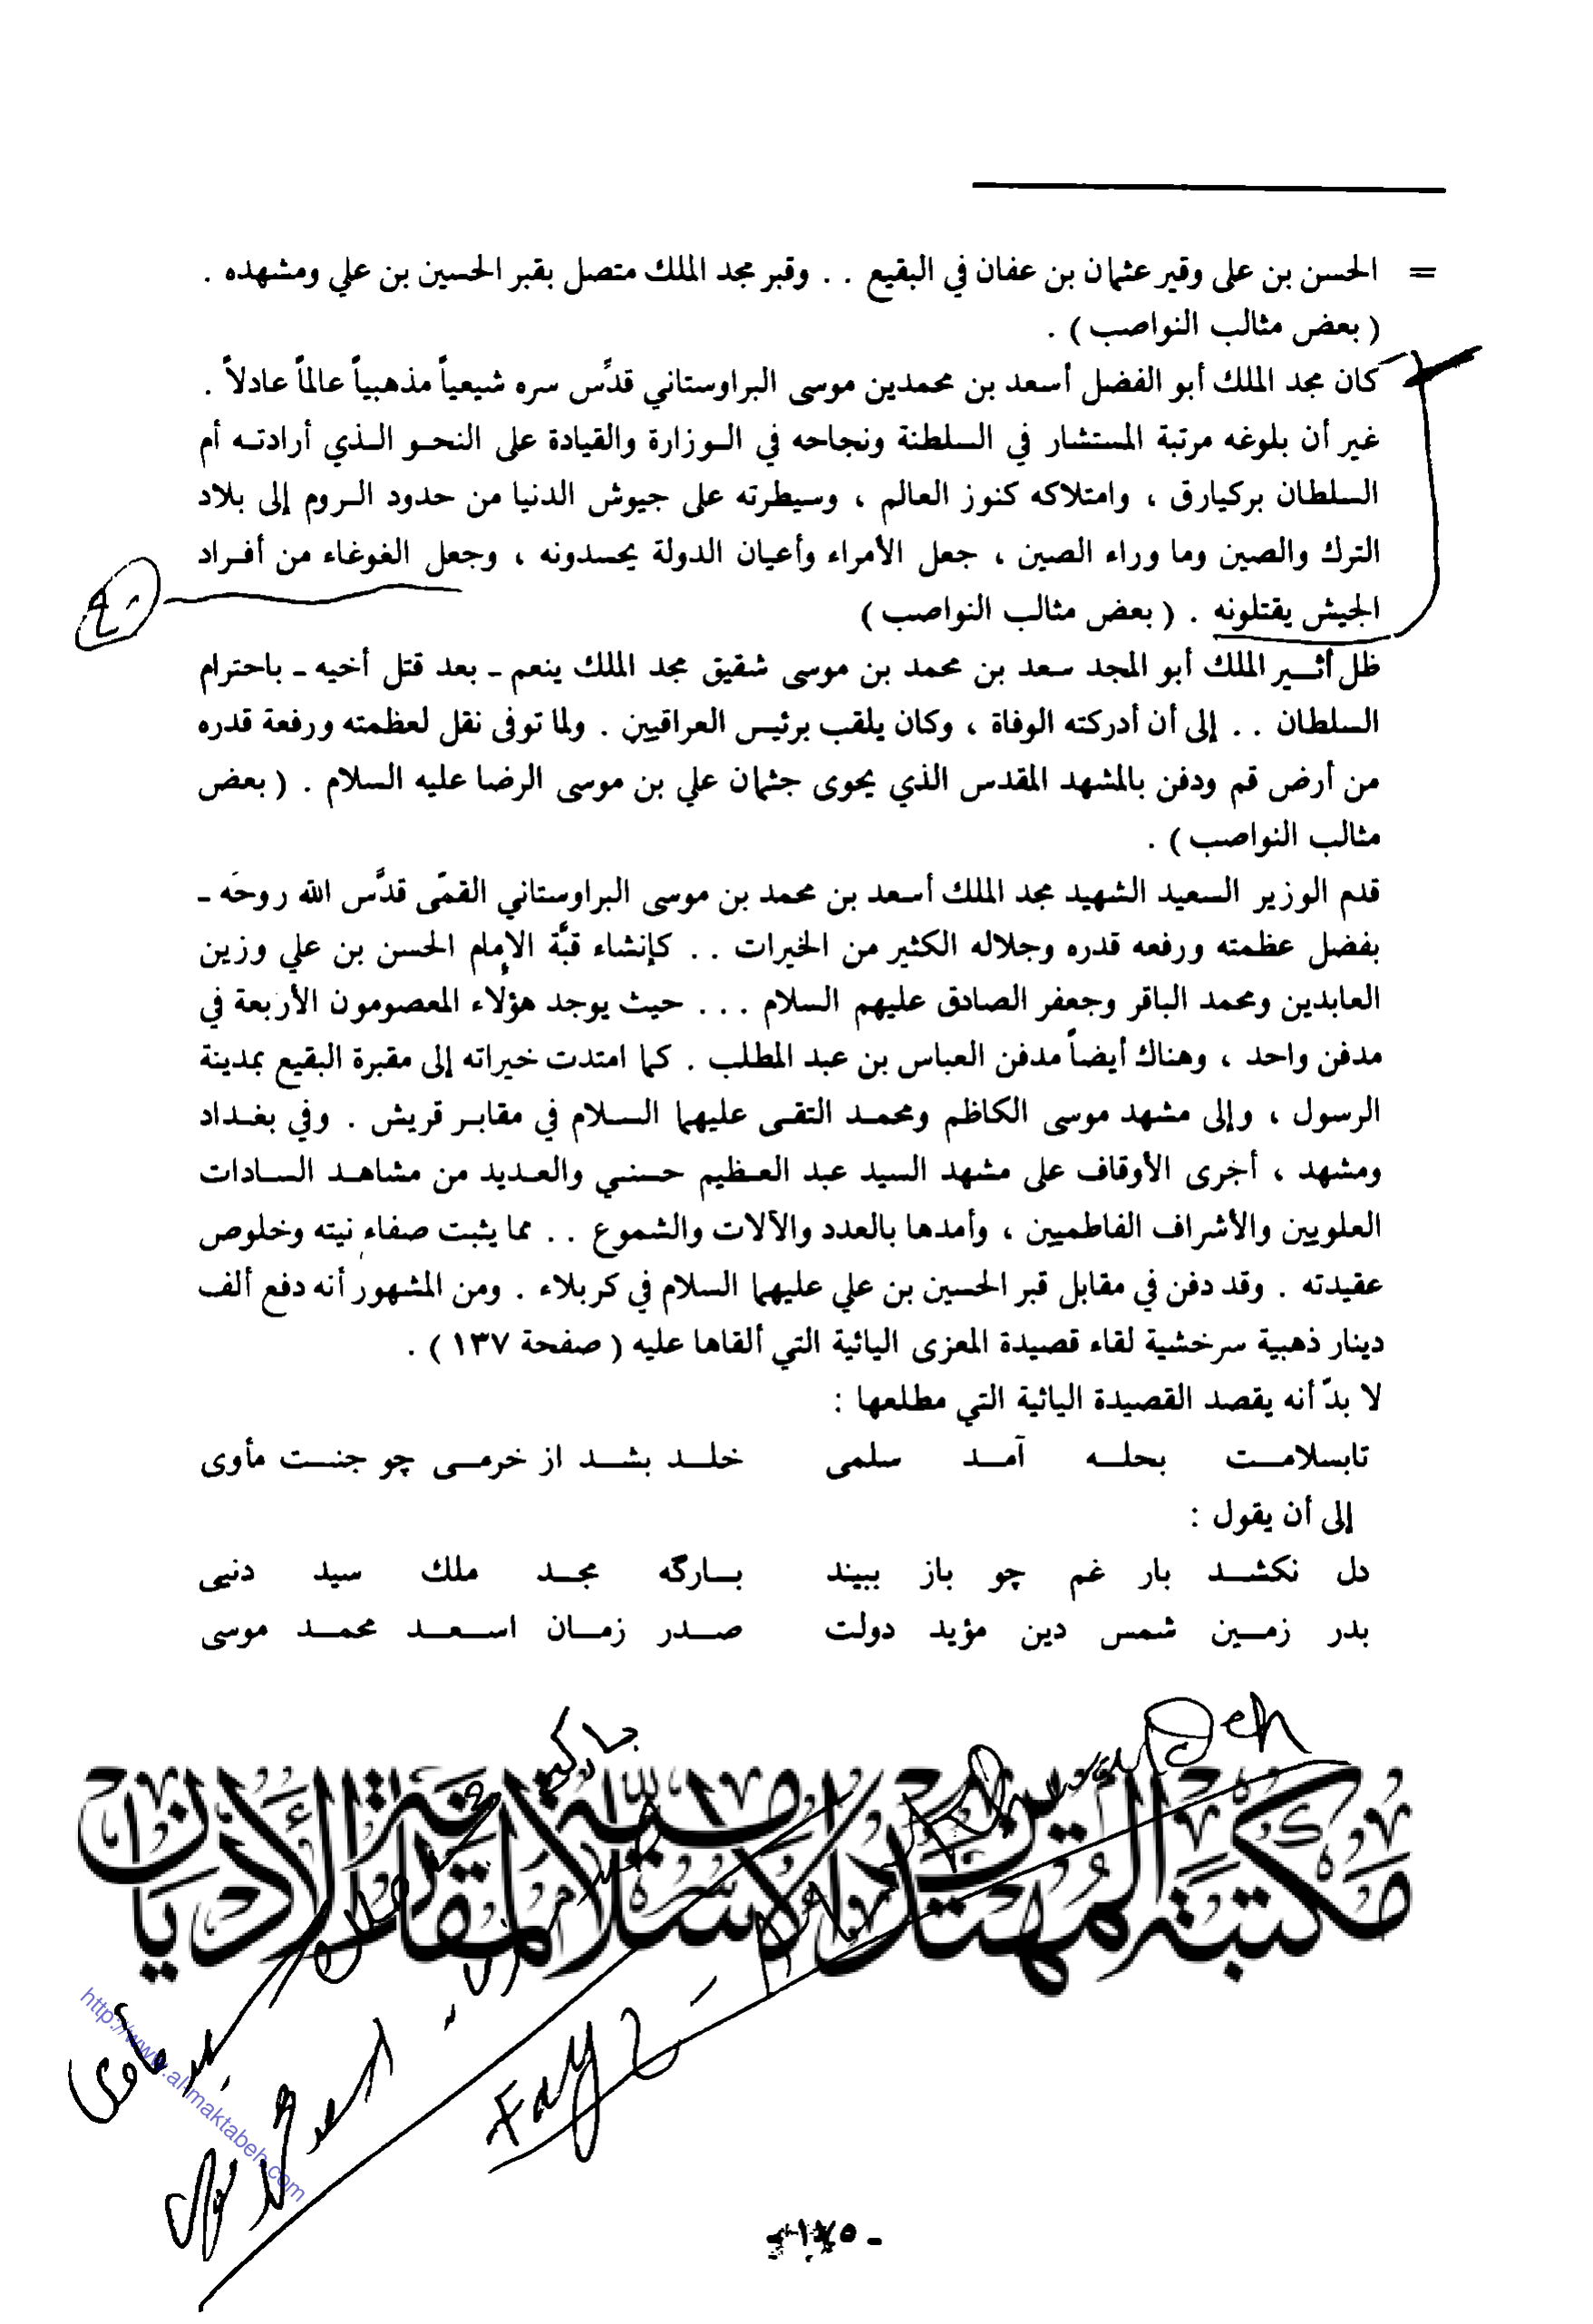 = الحسن بن على وقير عثمان بن عفان في البقيع . . وقبر مجد الملك متصل بقبر الحسين بن علي ومشهده .
( بعض مثالب النواصب ) .
كان مجد الملك أبو الفضل أسعد بن محمدين موسى البراوستاني قدَّس سره شيعياً مذهبياً عالماً عادلاً .
غير أن بلوغه مرتبة المستشار في السلطنة ونجاحه في الوزارة والقيادة على النحو الذي أرادته أم
السلطان بركيارق ، وامتلاكه كنوز العالم ، وسيطرته على جيوش الدنيا من حدود الروم إلى بلاد
الترك والصين وما وراء الصين ، جعل الأمراء وأعيان الدولة يحسدونه ، وجعل الغوغاء من أفراد
الجيش يقتلونه . ( بعض مثالب النواصب )
ظل أثير الملك أبو المجد سعد بن محمد بن موسى شقيق مجد الملك ينعم - بعد قتل أخيه - باحترام
السلطان . . إلى أن أدركته الوفاة ، وكان يلقب برئيس العراقيين . ولما توفى نقل لعظمته ورفعة قدره
من أرض قم ودفن بالمشهد المقدس الذي يحوى جثمان علي بن موسى الرضا عليه السلام . ( بعض
مثالب النواصب ) .
قدم الوزير السعيد الشهيد مجد الملك أسعد بن محمد بن موسى البراوستاني القمّى قدَّس الله روحَه -
بفضل عظمته ورفعه قدره وجلاله الكثير من الخيرات . . كإنشاء قبَّة الإمام الحسن بن علي وزين
العابدين ومحمد الباقر وجعفر الصادق عليهم السلام . . . حيث يوجد هؤلاء المعصومون الأربعة في
مدفن واحد ، وهناك أيضاً مدفن العباس بن عبد المطلب . كما امتدت خيراته إلى مقبرة البقيع بمدينة
الرسول ، وإلى مشهد موسى الكاظم ومحمد التقى عليهما السلام في مقابر قريش . وفي بغداد
ومشهد ، أجرى الأوقاف على مشهد السيد عبد العظيم حسنى والعديد من مشاهد السادات
العلويين والأشراف الفاطميين ، وأمدها بالعدد والآلات والشموع . . مما يثبت صفاء نيته وخلوص
عقيدته . وقد دفن في مقابل قبر الحسين بن علي عليهما السلام في كربلاء . ومن المشهور أنه دفع ألف
دينار ذهبية سرخشية لقاء قصيدة المعزى اليائية التي ألقاها عليه ( صفحة ١٣٧ ) .
لا بدّ أنه يقصد القصيدة اليائية التي مطلعها :
تابسلامت بحله آمد سلمى خلد بشد از خرمى چو جنت مأوى
إلى أن يقول :
دل نكشد بار غم چو باز ببيند بارگه مجد ملك سيد دنيى
بدر زمين شمس دين مؤيد دولت صدر زمان اسعد محمد موسى
مكتبة المهتدين الإسلامية لمقارنة الأديان
http://www.al-maktabeh.com